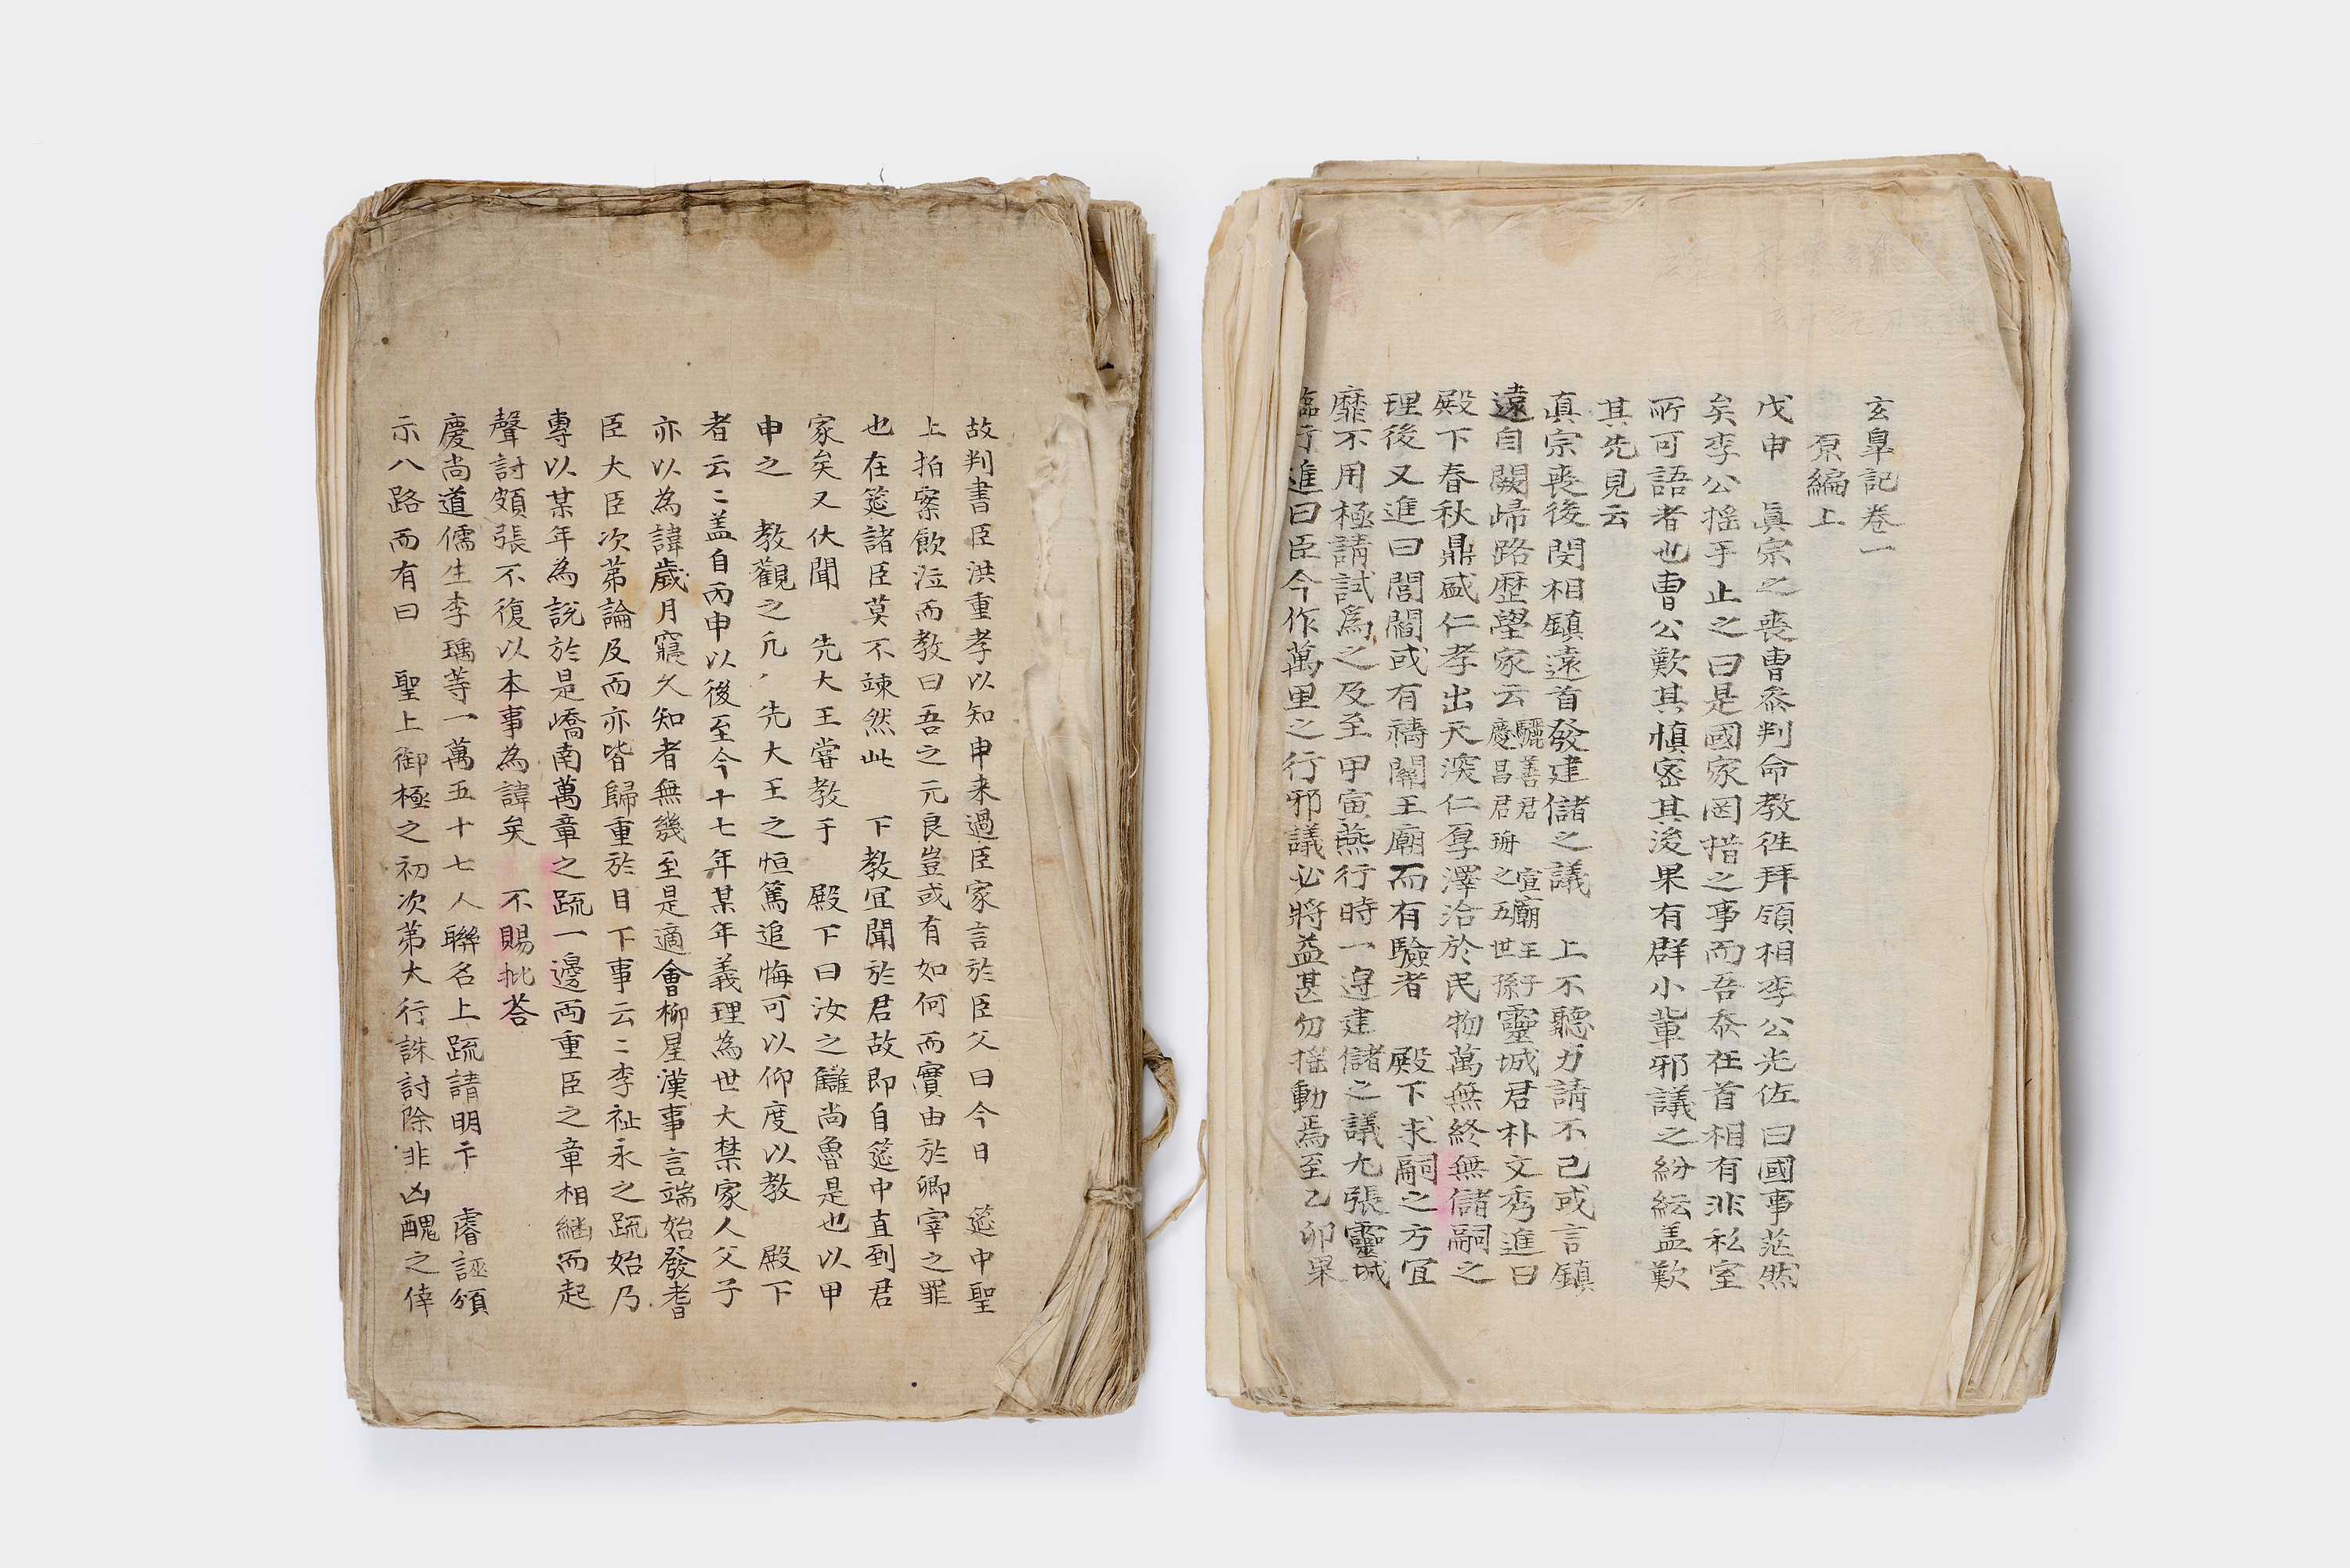 玄皐記卷一
原編上
戊申 眞宗之喪曺叅判命教徃拜領相李公光佐曰國事茫然
矣李公摇手止之曰是國家罔措之事而吾忝在首相有非私室
所可語者也曺公歎其愼密其後果有群小輩邪議之紛紜盖歎
其先見云
眞宗喪後閔相鎭遠首發建儲之議 上不聽力請不已或言鎭
遠自闕歸路歷望家云驪善君 宣廟王子慶昌君珊之五世孫靈城君朴文秀進曰
殿下春秋鼎盛仁孝出天深仁厚澤洽於民物萬無終無儲嗣之
理後又進曰閭閻或有禱關王廟而有驗者 殿下求嗣之方宜
靡不用極請試爲之及至甲寅燕行時一邊建儲之議尤張靈城
臨行進曰臣今作萬里之行邪議必將益甚勿摇動焉至乙卯果
故判書臣洪重孝以知申来過臣家言於臣父曰今日 筵中聖
上拍案飮泣而教曰吾之元良豈或有如何而實由於卿宰之罪
也在筵諸臣莫不竦然此 下教宜聞於君故即自筵中直到君
家矣又伏聞 先大王嘗教于 殿下曰汝之讎尚魯是也以甲
申之 教觀之 先大王之恒篤追悔可以仰度以教 殿下
者云〻盖自丙申以後至今十七年某年義理為世大禁家人父子
亦以為諱歲月寢久知者無幾至是適會柳星漢事言端始發耆
臣大臣次苐論及而亦皆歸重於目下事云〻李祉永之疏始乃
專以某年為說於是嶠南萬章之疏一邊両重臣之章相繼而起
聲討頗張不復以本事為諱矣 不賜批荅
慶尚道儒生李瑀等一萬五十七人聯名上疏請明卞 睿誣頒
示八路而有曰 聖上御極之初次苐大行誅討除非凶醜之倖